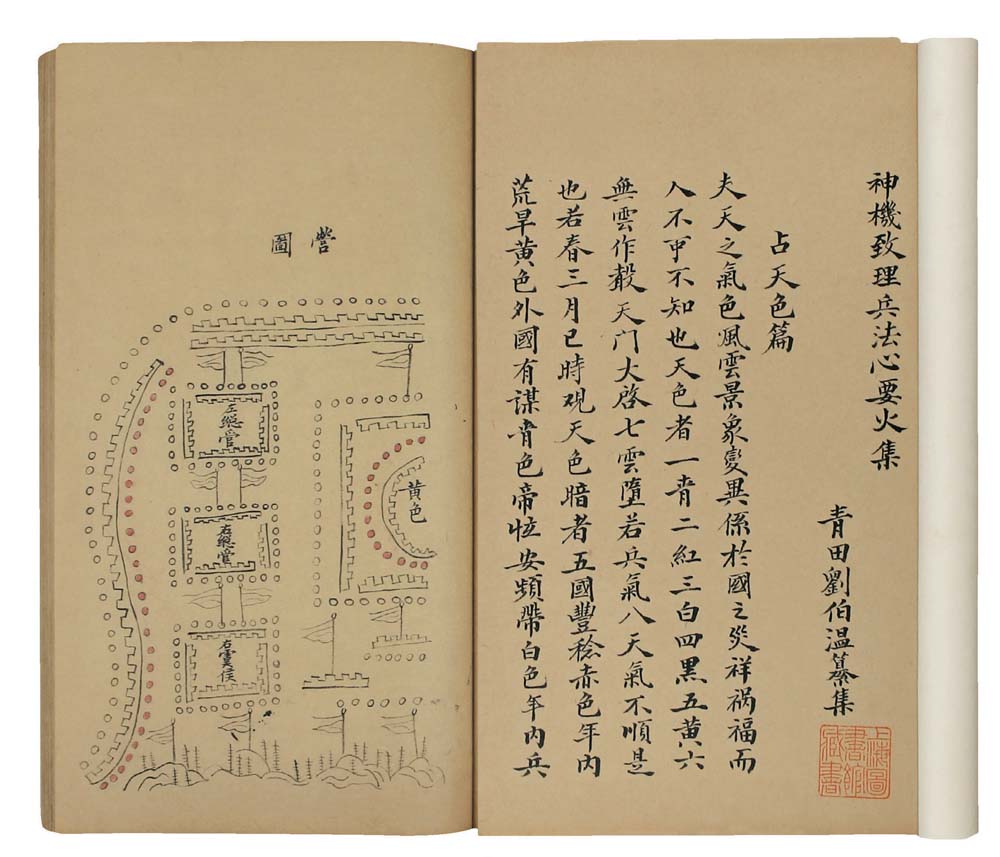 神機致理兵法心要火集
青田劉伯温纂集
占天色篇
夫天之氣色風雲景象變異係於國之災祥祸福而
人不可不知也天色者一青二紅三白四黑五黄六
無雲作天门大啓七雲墮若兵氣八天氣不順是
也若春三月巳時观天色暗者五國豐稔赤色年内
荒旱黄色外國有謀青色帝安頻帶白色年内兵
上海圖
書館
藏書
營圖
黄色
左總管
右總管
右虞侯